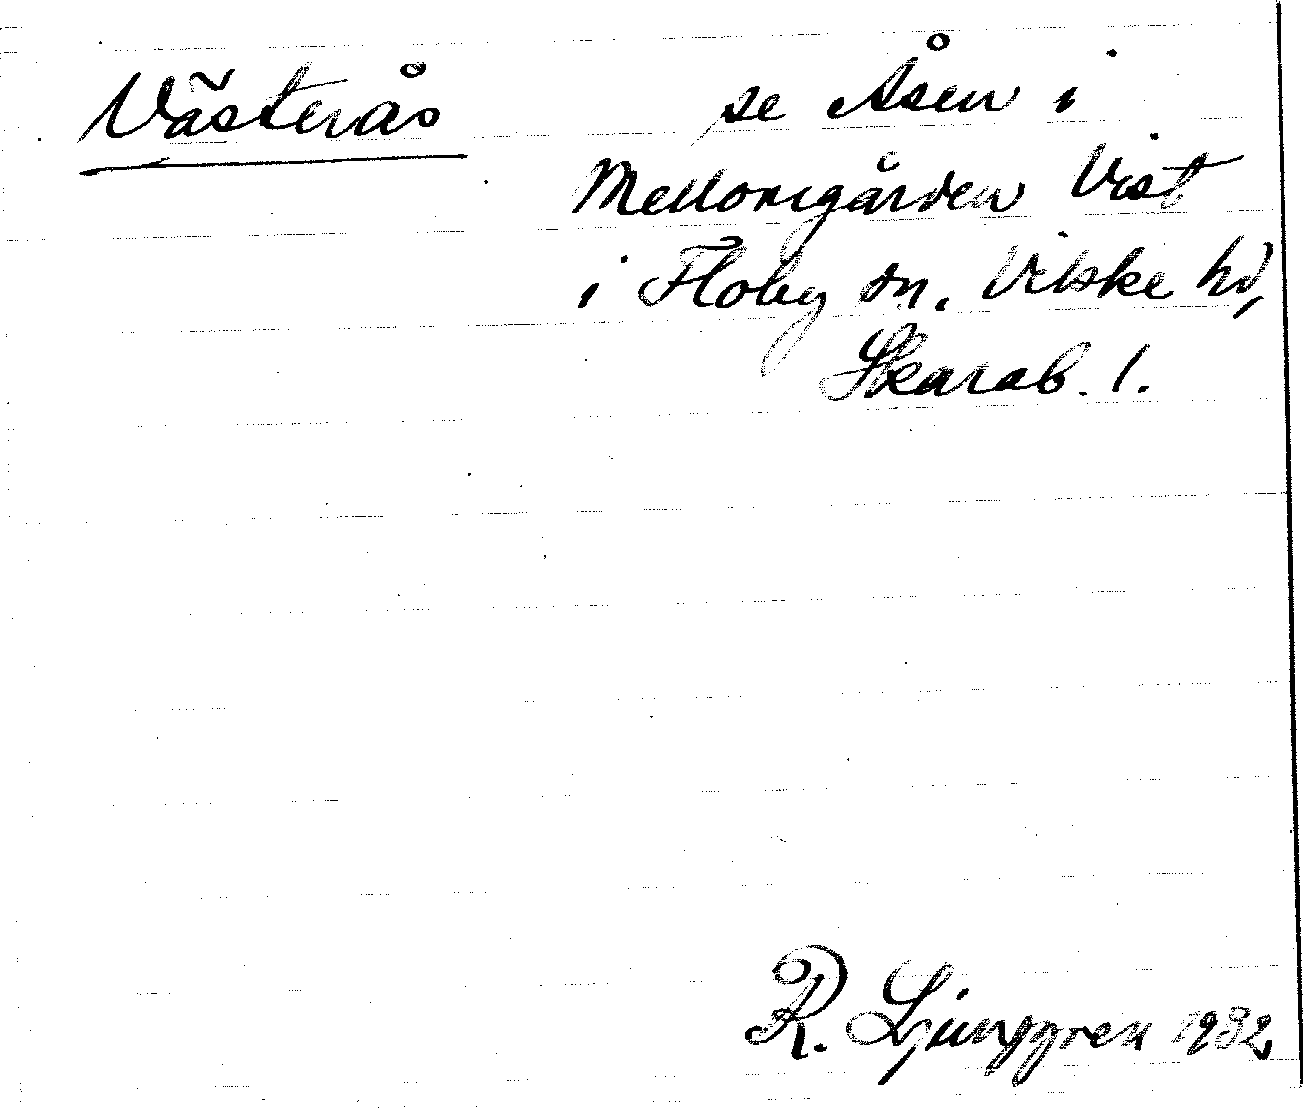 Västerås se Åsen i
Mellomgården Vist
i Floby sn. Vilske hd,
Skarab. l.
R. Ljunggren 1932